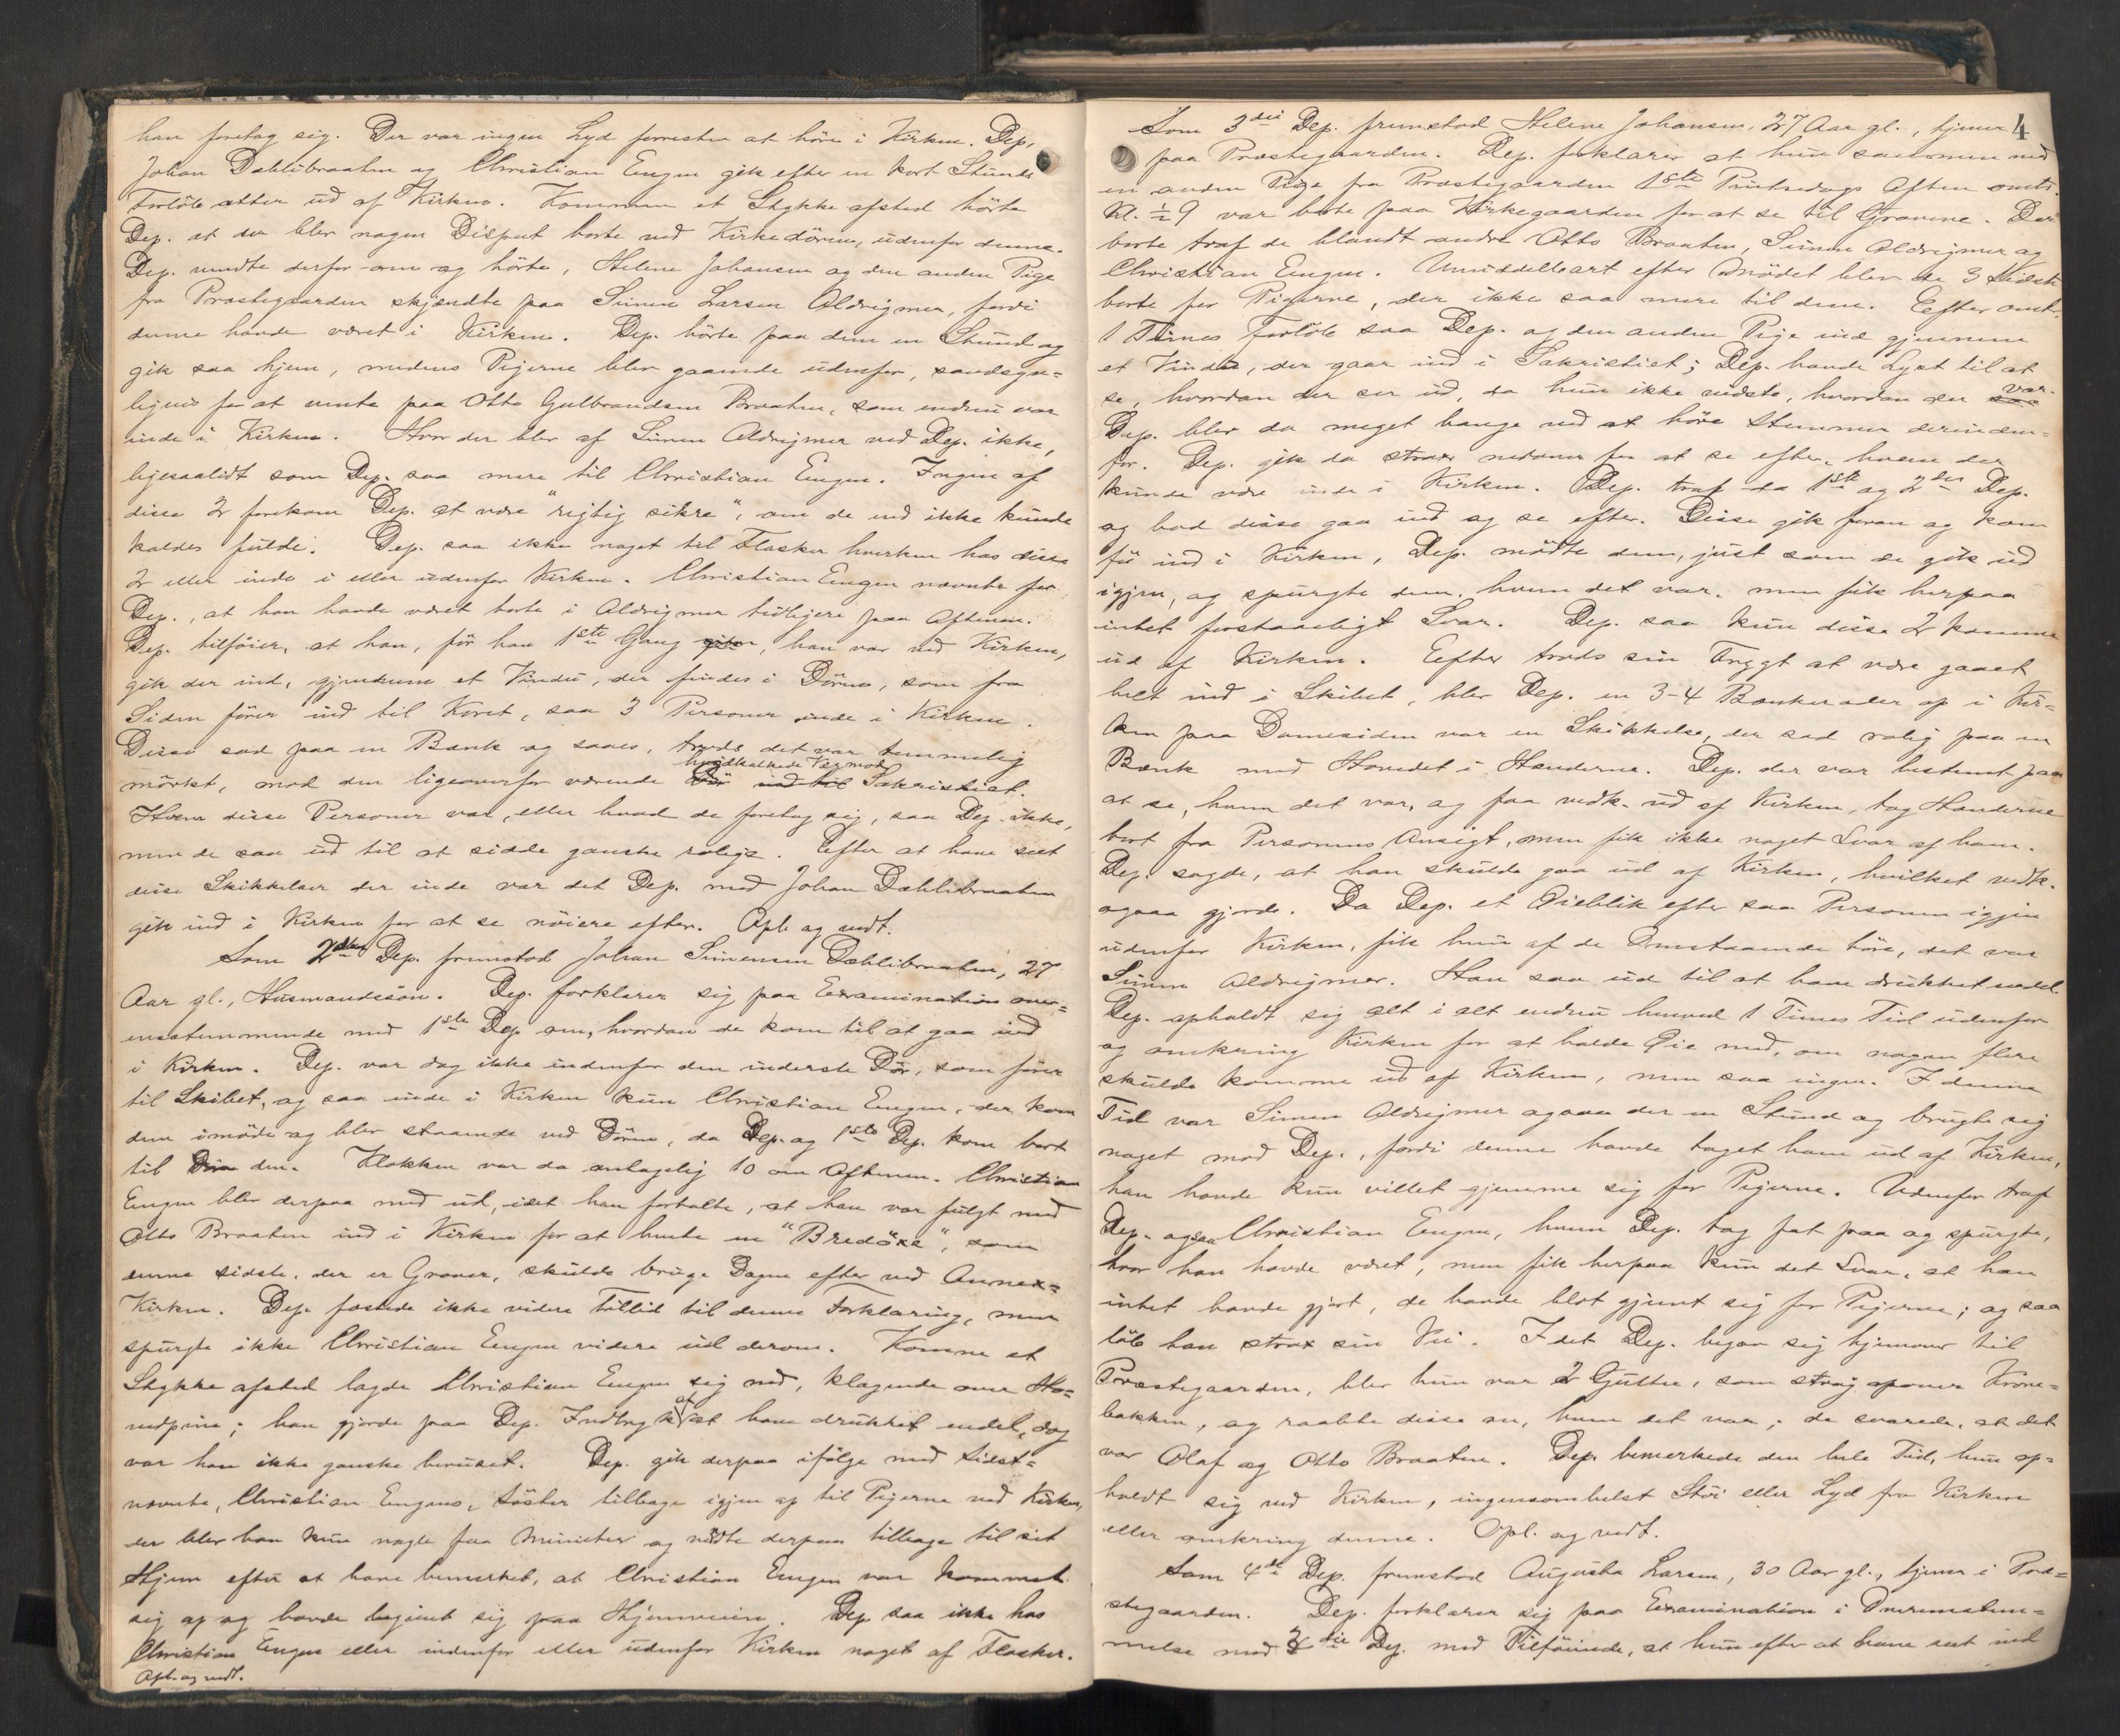 han foretog sig. Der var ingen Lyd forresten at höre i Kirken. Dep,
Johan Dæhlibraaten og Christian Engen gik efter en kort Stunds
Forlöb atter ud af Kirken. Kommen et Stykke afsted hörte
Dep. at der blev nogen Disput borte ved Kirkedören, udenfor denne.
Dep. vendte derfor om og hörte, Helene Johansen og den anden Pige
fra Præstegaarden skjændte paa Simen Larsen Aldrigmer, fordi
denne havde været i Kirken. Dep. hörte paa dem en Stund og
gik saa hjem, medens Pigerne blev gaaende udenfor, sandsyn=
ligvis for at vente paa Otto Gulbrandsen Braaten, som endnu var
inde i Kirken. Hvor der blev af Simen Aldrigmer ved Dep. ikke,
ligesaalidt som Dep. saa mere til Christian Engen. Ingen af
disse 2 forekom Dep. at være "rigtig sikre", om de end ikke kunde
kaldes fulde. Dep. saa ikke noget til Flasker hverken hos disse
2 eller inde i eller udenfor Kirken. Christian Engen nævnte for
Dep., at han havde været borte i Aldrigmer tidligere paa Aftenen.
Dep. tilföier, at han, för han 1ste Gang, han var ved Kirken,
gik der ind, gjennem et Vindu, der findes i Dören, som fra
Siden förer ind til Koret, saa 3 Personer inde i Kirken.
Disse sad paa en Bænk og saaes, trods det var temmelig
mörkt, mod den ligeoverfor værende hvidkalkede Væg mod Dör ind til Sakristiet.
Hvem disse Personer var, eller hvad de foretog sig, saa Dep. ikke,
men de saa ud til at sidde ganske rolige. Efter at have seet
disse Skikkelser der inde var det Dep. med Johan Dæhlibraaten
gik ind i Kirken for at se nöiere efter. Opl. og vedt.
Som 2den Dep. fremstod Johan Simensen Dæhlibraaten, 27
Aar gl., Husmandssön. Dep. forklarer sig paa Examination over=
ensstemmende med 1ste Dep. om, hvordan de kom til at gaa ind
i Kirken. Dep. var dog ikke indenfor den inderste Dör, som förer
til Skibet, og saa inde i Kirken kun Christian Engen, der kom
dem imöde og blev staaende ved Dören, da Dep. og 1ste Dep. kom bort
til den. Klokken var da antagelig 10 om Aftenen. Christian
Engen blev derpaa med ud, idet han fortalte, at han var fulgt med
Otto Braaten ind i Kirken for at hente en "Bredöxe", som
denne sidste, der er Graver, skulde bruge Dagen efter ved Annex=
Kirken. Dep. fæstede ikke videre Tillid til denne Forklaring, men
spurgte ikke Christian Engen videre ud derom. Komne et
Stykke afsted lagde Christian Engen sig ned, klagende over Ho=
vedpine; han gjorde paa Dep. Indtryk af at have drukket endel, dog
var han ikke ganske beruset. Dep. gik derpaa ifölge med sidst=
nævnte, Christian Engens, Söster tilbage igjen op til Pigerne ved Kirken,
der blev han kun nogle faa Minuter og vendte derpaa tilbage til sit
Hjem efter at have bemerket, at Christian Engen var kommet
sig op og havde begivet sig paa Hjemveien. Dep. saa ikke hos
Christian Engen eller indenfor eller udenfor Kirken noget af Flasker.
Opl. og vedt.
4
Som 3die Dep. fremstod Helene Johansen, 27 Aar gl., tjener
paa Præstegaarden. Dep. forklarer at hun sammen med
en anden Pige fra Præstegaarden 1ste Pintsedags Aften omtr.
Kl. ½ 9 var borte paa Kirkegaarden for at se til Gravene. Der
borte traf de blandt andre Otto Braaten, Simen Aldrigmer og
Christian Engen. Umiddelbart efter Mödet blev de 3 sidste
borte for Pigerne, der ikke saa mere til dem. Efter omt.
1 Times Forlöb saa Dep. og den anden Pige ind gjennem
et Vindu, der gaar ind i Sakristiet; Dep. havde Lyst til at
se, hvordan der ser ud, da hun ikke vidste, hvordan der var.
Dep. blev da meget bange ved at höre Stemmer derinden=
for. Dep. gik da strax nedover for at se efter, hvem der
kunde være inde i Kirken. Dep. traf da 1ste og 2den Dep.
og bad disse gaa ind og se efter. Disse gik foran og kom
för ind i Kirken, Dep. mödte dem, just som de gik ud
igjen, og spurgte dem, hvem det var, men fik herpaa
intet forstaaeligt Svar. Dep. saa kun disse 2 komme
ud af Kirken. Efter trods sin Frygt at være gaaet
helt ind i Skibet, blev Dep. en 3-4 Bænkerader op i Kir=
ken paa Damesiden var en Skikkelse, der sad rolig paa en
Bænk med Hovedet i Hænderne. Dep. der var bestemt paa
at se, hvem det var, og faa vedk. ud af Kirken, tog Hænderne
bort fra Personens Ansigt, men fik ikke noget Svar af ham.
Dep. sagde, at han skulde gaa ud af Kirken, hvilket vedk.
ogsaa gjorde. Da Dep. et Öieblik efter saa Personen igjen
udenfor Kirken, fik hun af de Omstaaende höre, det var
Simen Aldrigmer. Han saa ud til at have drukket endel.
Dep. opholdt sig alt i alt endnu henved 1 Times Tid udenfor
og omkring Kirken for at holde Öie med, om nogen flere
skulde komme ud af Kirken, men saa ingen. I denne
Tid var Simen Aldrigmer ogsaa der en Stund og brugte sig
noget mod Dep., fordi denne havde taget ham ud af Kirken,
han havde kun villet gjemme sig for Pigerne. Udenfor traf
Dep. ogsaa Christian Engen, hvem Dep. tog fat paa og spurgte,
hvor han havde været, men fik herpaa kun det Svar, at han
intet havde gjort, de havde blot gjemt sig for Pigerne; og saa
löb han strax sin Vei. I det Dep. begav sig hjemover til
Præstegaarden, blev hun var 2 Gutter, som strög opover Krone=
bakken, og raabte disse an, hvem det var; de svarede, at det
var Olaf og Otto Braaten. Dep. bemerkede den hele Tid, hun op=
holdt sig ved Kirken, ingensomhelst Stöi eller Lyd fra Kirken
eller omkring denne. Opl. og vedt.
Som 4de Dep. fremstod Augusta Larsen, 30 Aar gl., tjener i Præ=
stegaarden. Dep. forklarer sig paa Examination i Overensstem=
melse med 3die Dep. med Tilföiende, at hun efter at have seet ind